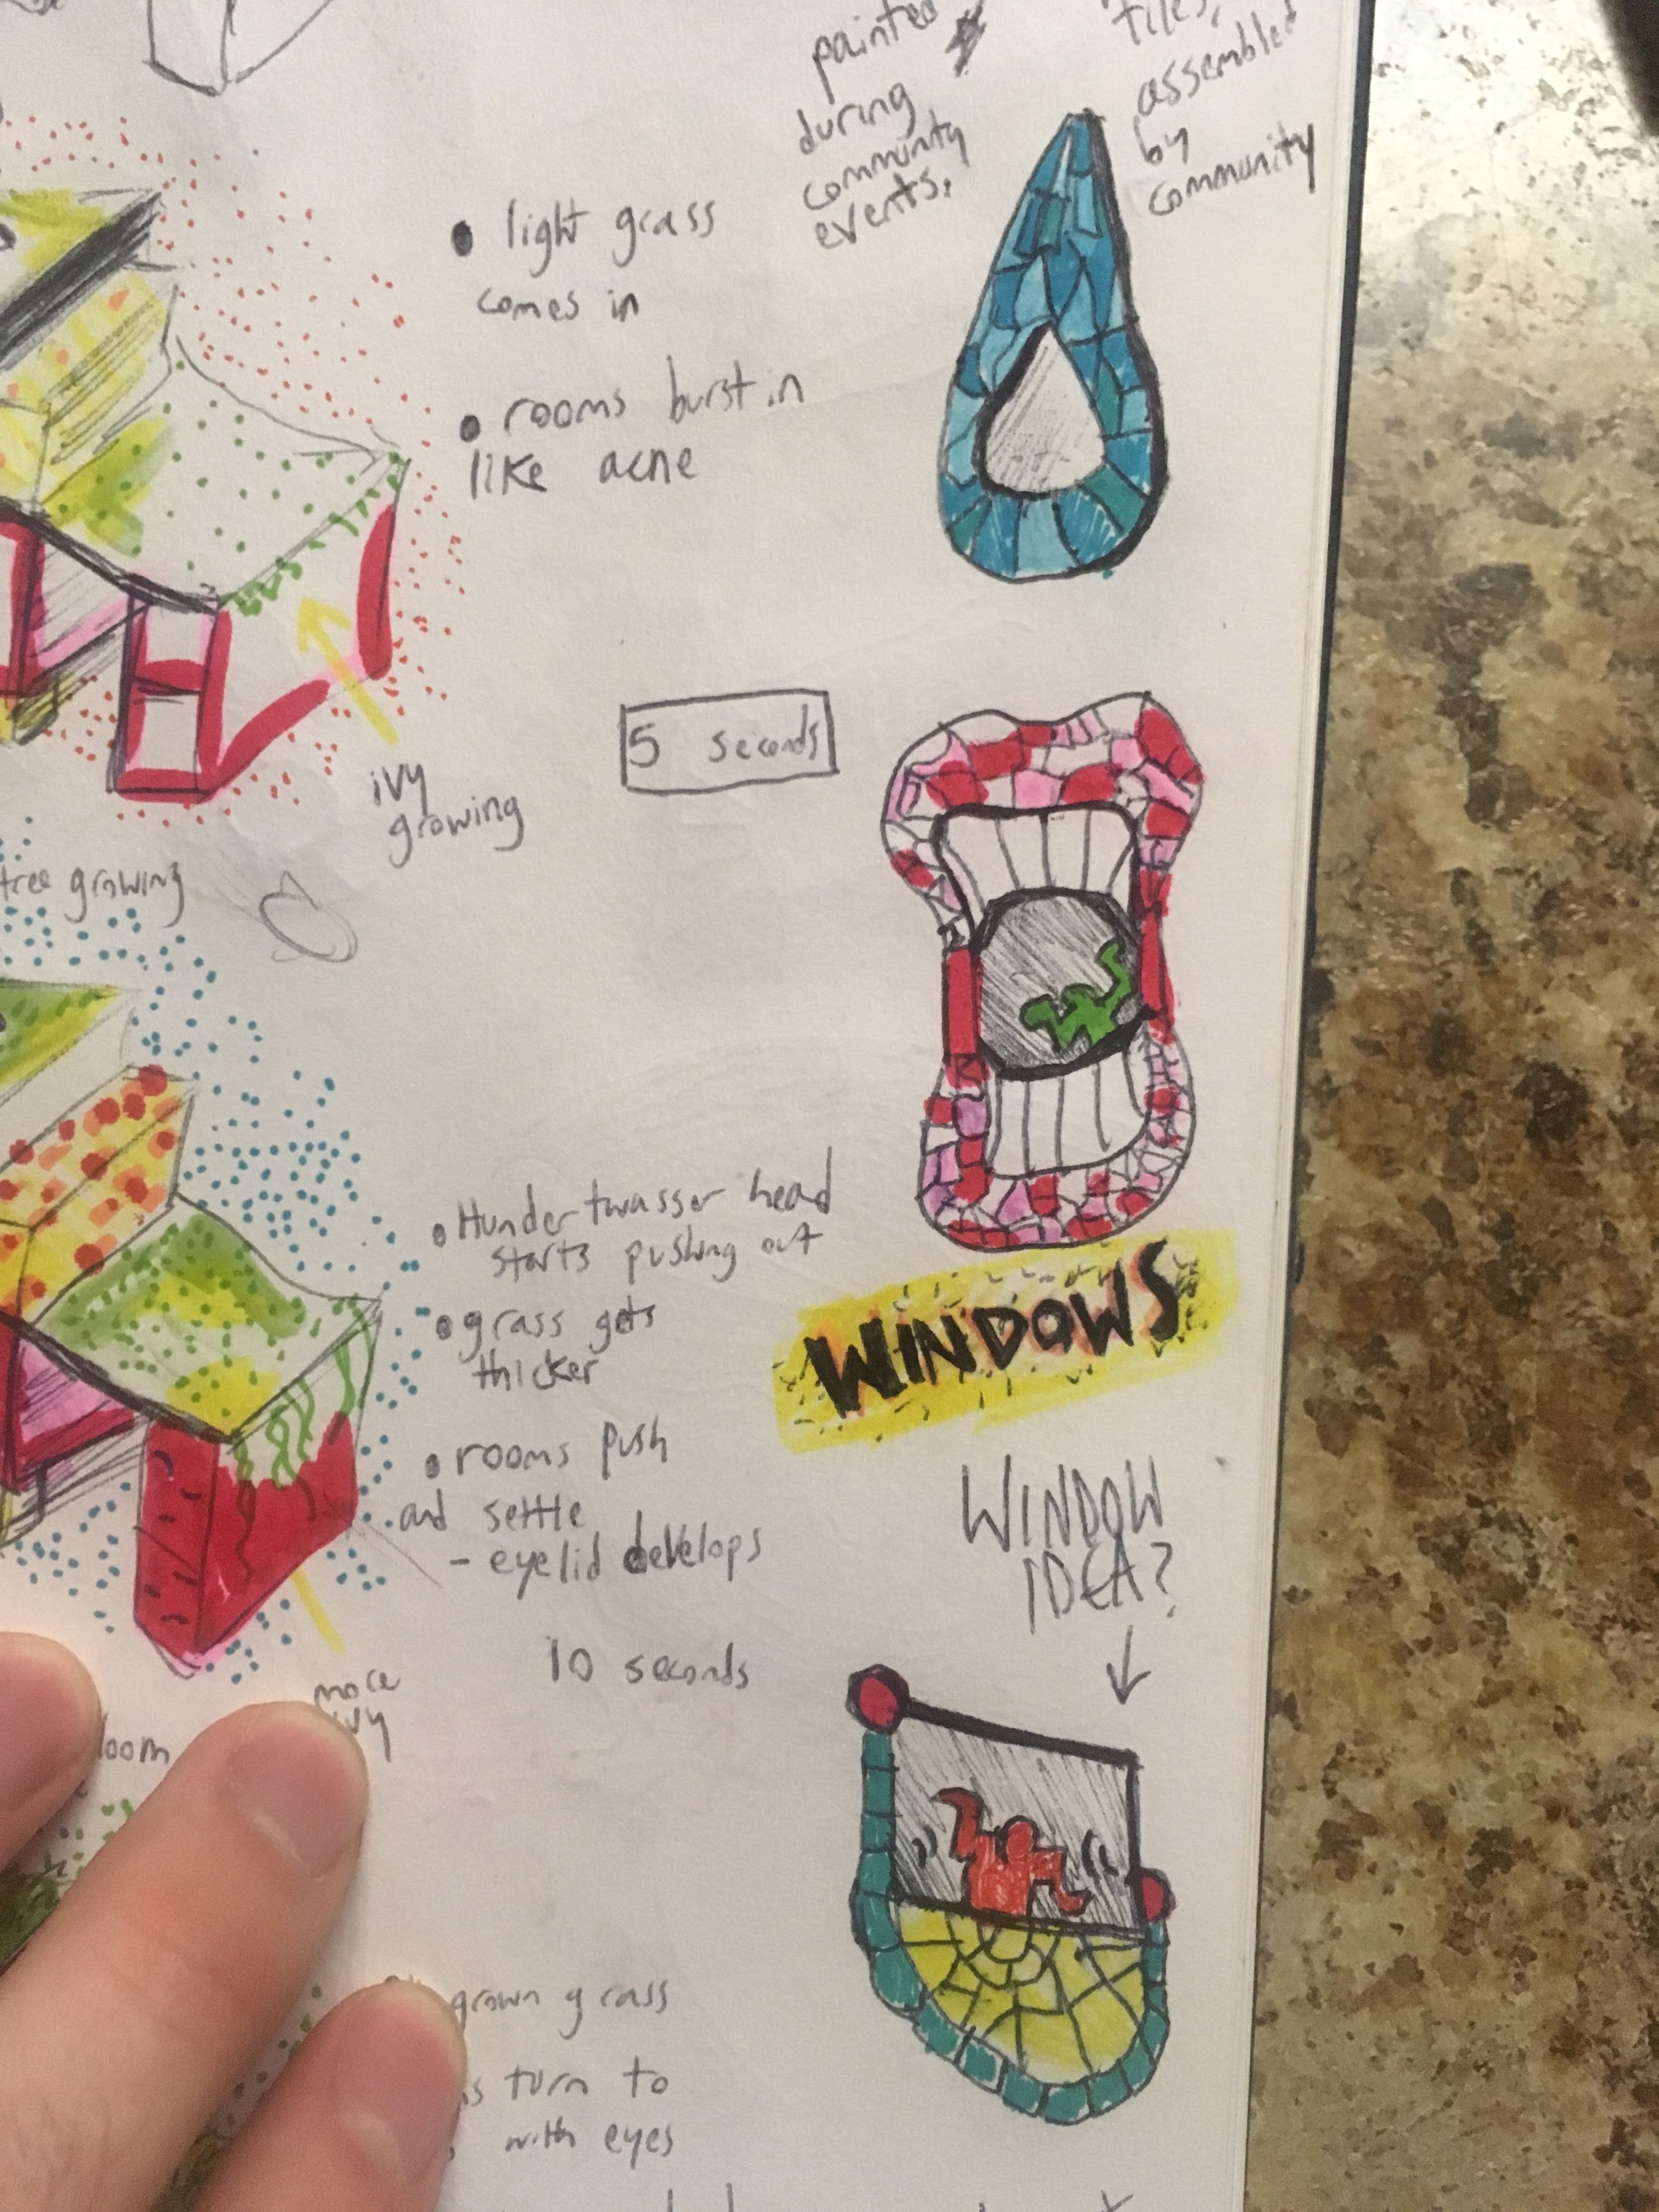 painted
during
community
events.
tiles,
assembled
by
community
• light grass
comes in
• rooms burst in
like acne
5 seconds
ivy
growing
tree growing
• Hundertwasser head
starts pushing out
• grass gets
thicker
• rooms push
and settle
- eyelid develops
10 seconds
more
ivy
WINDOWS
WINDOW
IDEA?
grown grass
turn to
with eyes